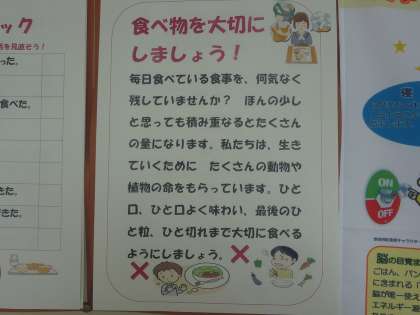 食べ物を大切に
しましょう！
毎日食べている食事を、何気なく
残していませんか？　ほんの少し
と思っても積み重なるとたくさん
の量になります。私たちは、生き
ていくために　たくさんの動物や
植物の命をもらっています。ひと
口、ひと口よく味わい、最後のひ
と粒、ひと切れまで大切に食べる
ようにしましょう。
ック
を見直そう！
った。
食べた。
た。
きた。
ON
OFF
脳の目覚ま
ごはん、パン
に含まれる「
脳が唯一使え
エネルギー源